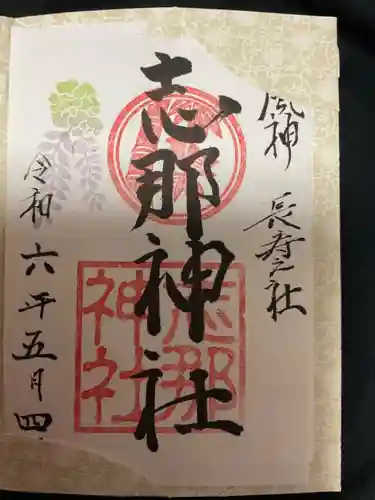 風神 長寿之社
志那神社
志那
神社
令和六年五月四